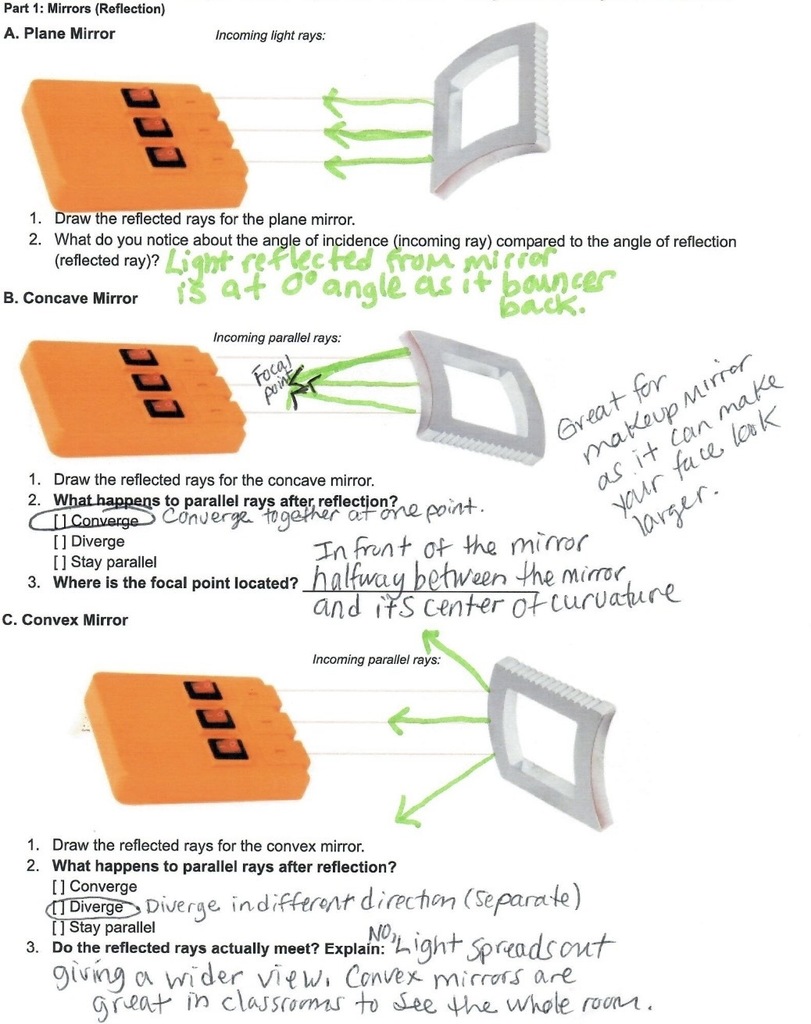 Part 1: Mirrors (Reflection)
A. Plane Mirror
Incoming light rays:
1. Draw the reflected rays for the plane mirror.
2. What do you notice about the angle of incidence (incoming ray) compared to the angle of reflection
(reflected ray)? Light reflected from mirror
is at 0° angle as it bouncer
back.
B. Concave Mirror
Incoming parallel rays:
Focal
point
Great for
makeup mirror
as it can make
your face look
larger.
1. Draw the reflected rays for the concave mirror.
2. What happens to parallel rays after reflection?
[ ] Converge Converge together at one point.
[ ] Diverge
[ ] Stay parallel
In front of the mirror
3. Where is the focal point located? halfway between the mirror
and its center of curvature
C. Convex Mirror
Incoming parallel rays:
1. Draw the reflected rays for the convex mirror.
2. What happens to parallel rays after reflection?
[ ] Converge
[ ] Diverge Diverge in different direction (separate)
[ ] Stay parallel
3. Do the reflected rays actually meet? Explain: No, Light spreads out
giving a wider view. Convex mirrors are
great in classrooms to see the whole room.